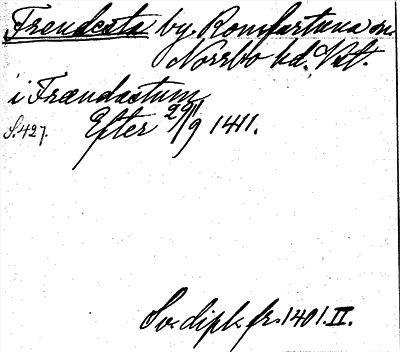 Frendesta by, Romfartuna sn.
Norrbo hd., Vstm.
i Frændastum
S. 427. Efter 29/9 1411.
Sv. dipl. fr. 1401. II.